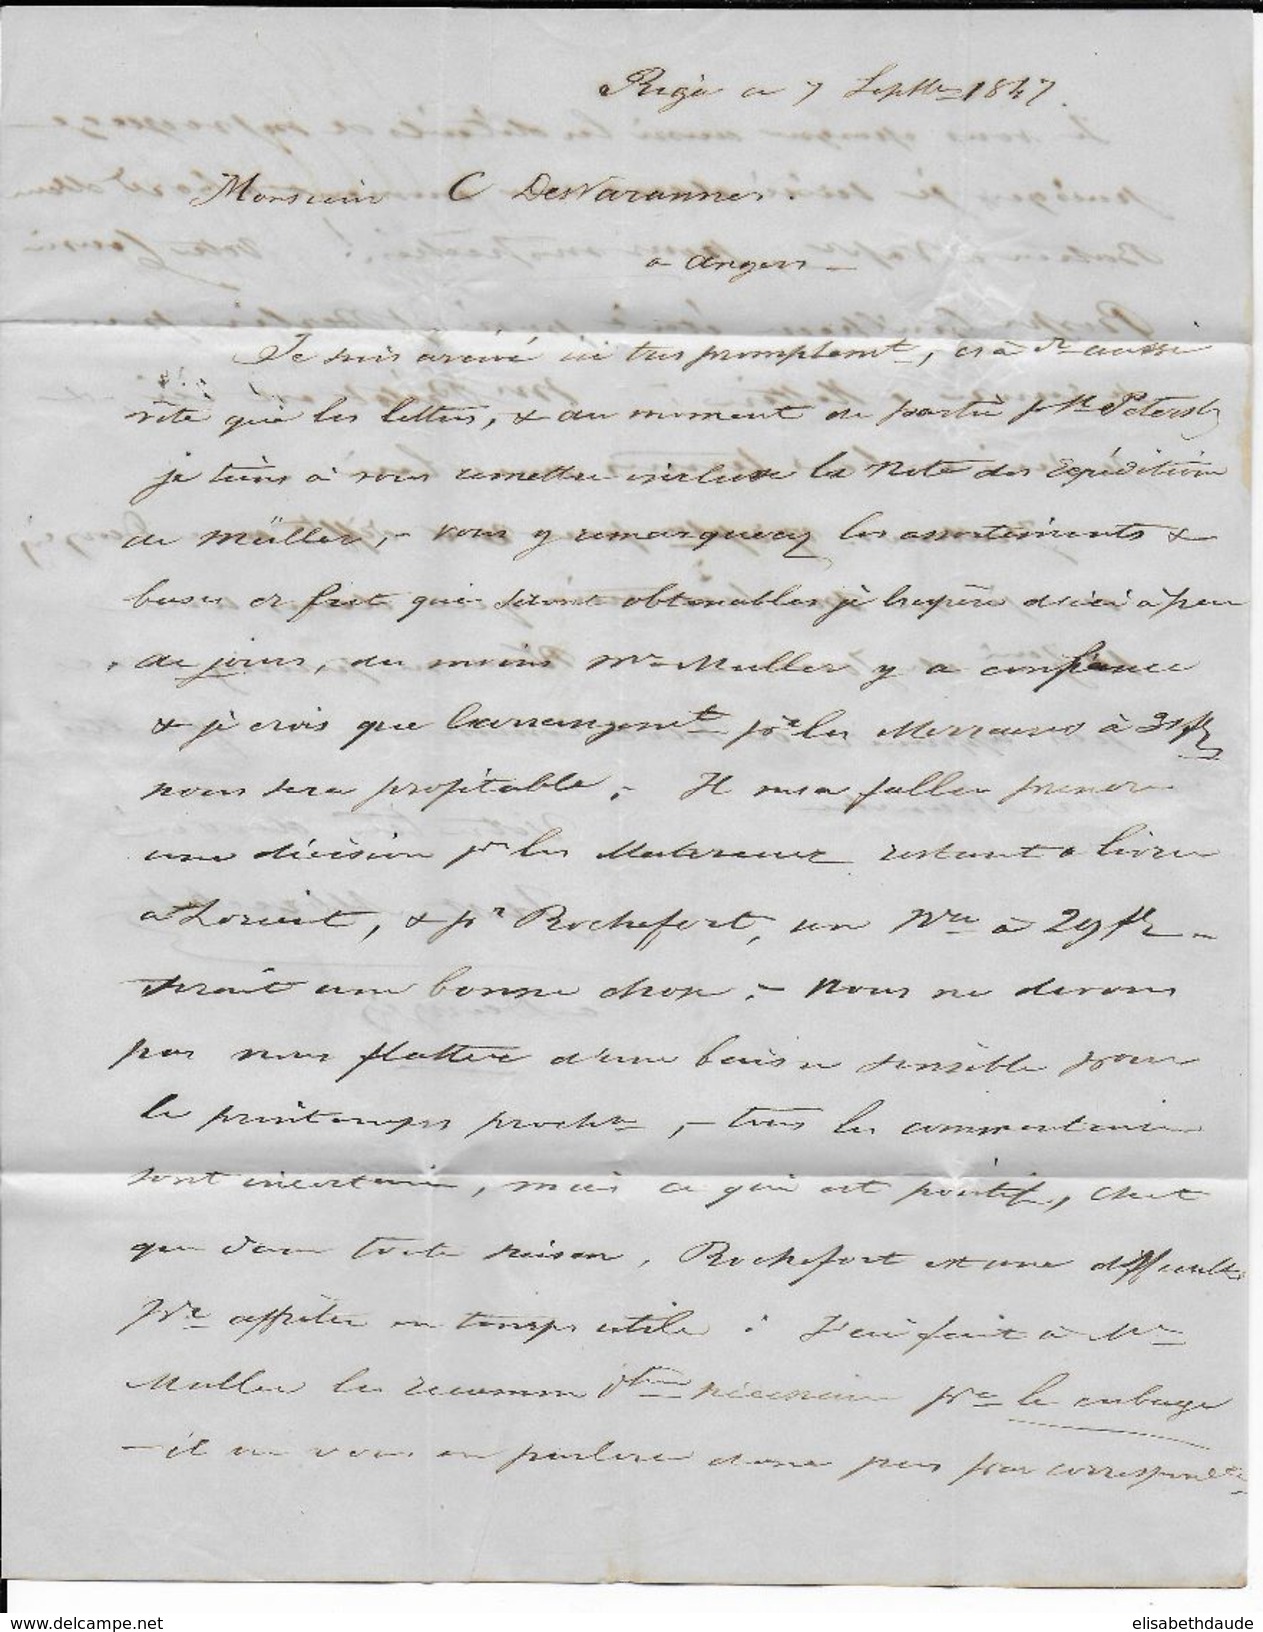 Riga ce 7 Septbre 1847.
Monsieur C DesVarannes.
a Angers —
Je suis arrivé ici très promptemt, c'est à dre aussi
vite que les lettres, & au moment de partir pr St Petersb
je tiens à vous remettre incluse la Note des Expéditions
de Müller, – vous y remarquerez les assortiments &
bases de fret qui seront obtenables je l'espère d'ici à peu
de jours, du moins Mr Muller y a confiance
& je crois que l'arrangemt pr les Merrains à 31 fr
nous sera profitable. – Il nous a fallu prendre
une décision pr les Matereaux restant à livrer
à Lorient, & pr Rochefort, un Nre à 29 fr –
serait une bonne chose. – Nous ne devons
pas nous flatter d'une baisse sensible pour
le printemps prochn, – tous les commentaires
sont incertains, mais ce qui est positif, c'est
que dans toute saison, Rochefort est une difficulté
pr affréter en temps utile. J'ai fait à Mr
Muller les recommdtions nécessaires pr le cubage
– il en vous en parlera dans peu par correspondce
elisabethdaude